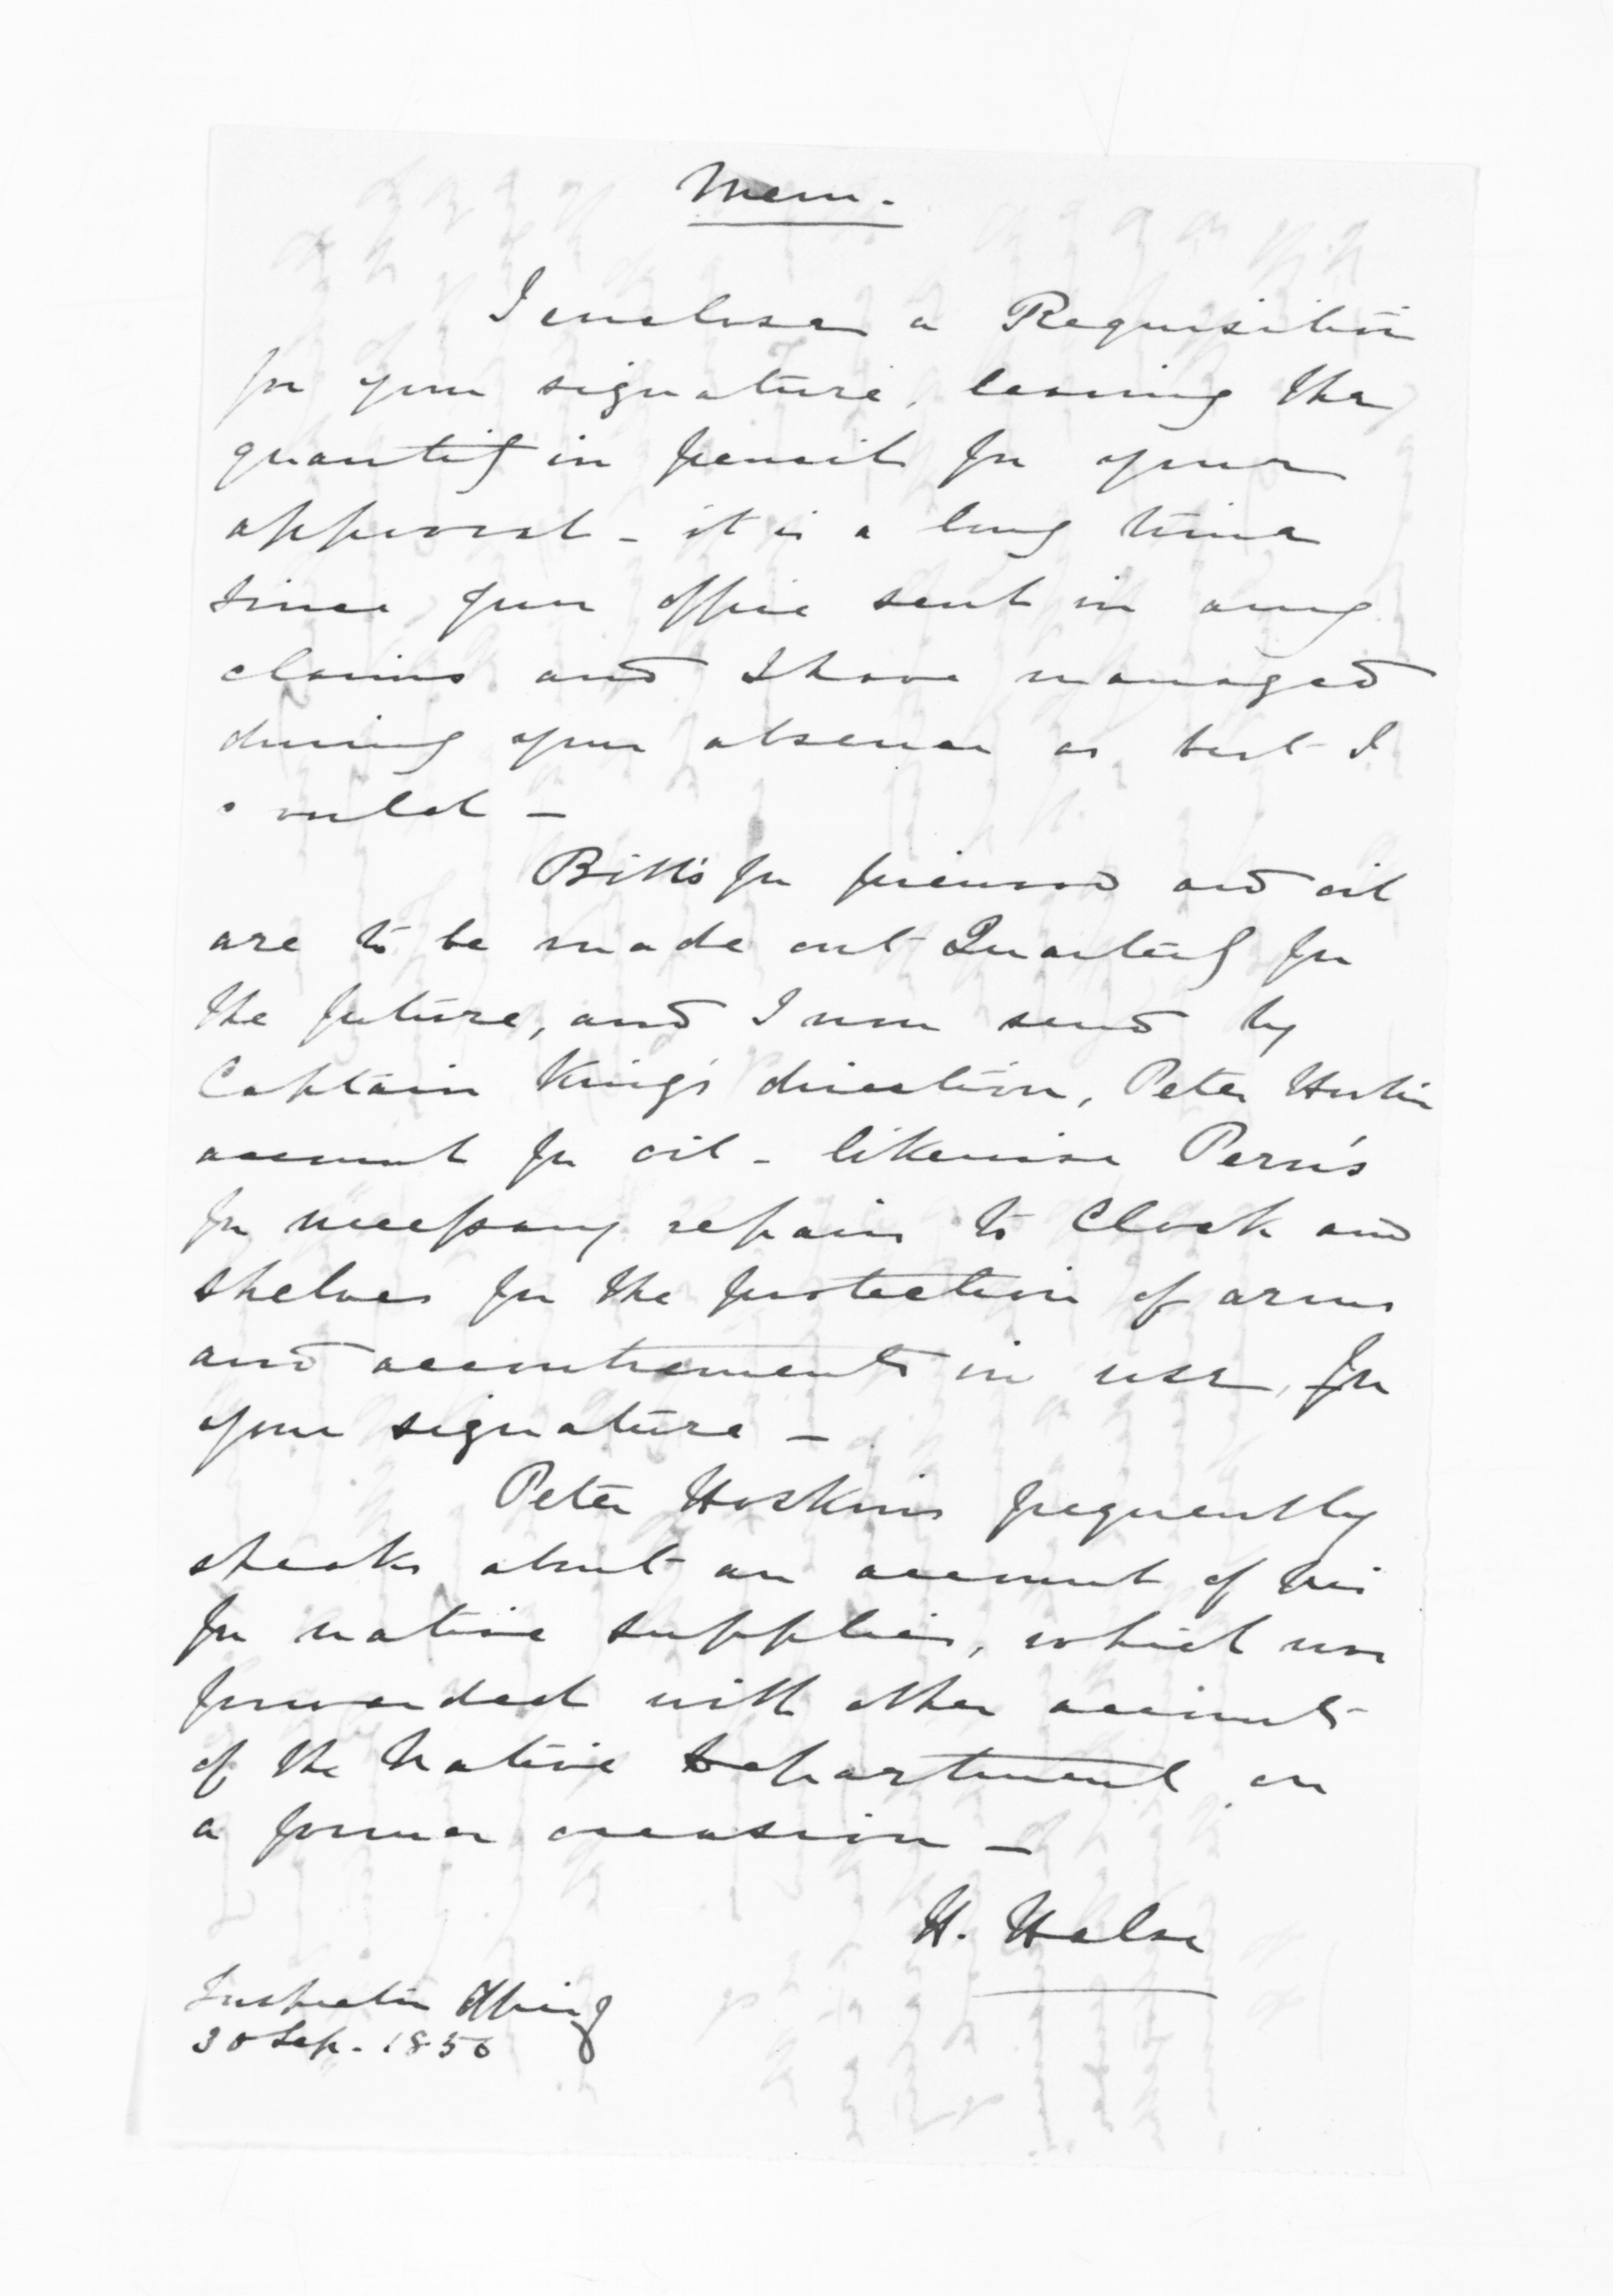 Mem.
I enclose a Requisition
for your signature, leaving the
quantity in pencil for your
approval - it is a long time
since your office sent in any
claims and I have managed
during your absence as best I
could -
Bills for firewood and oil
are to be made out Quarterly for
the future, and I now send by
Captain King's direction, Peter
account for oil - likewise Perry's
for necessary repairs to Clock and
shelves for the protection of arms
and accoutrements in use, for
your signature -
Peter Hoskins frequently
speaks about an account of his
for native supplies, which was
forwarded with other accounts
of the Native Department on
a former occasion -
H. Halse
Office
30 Sep. 1856